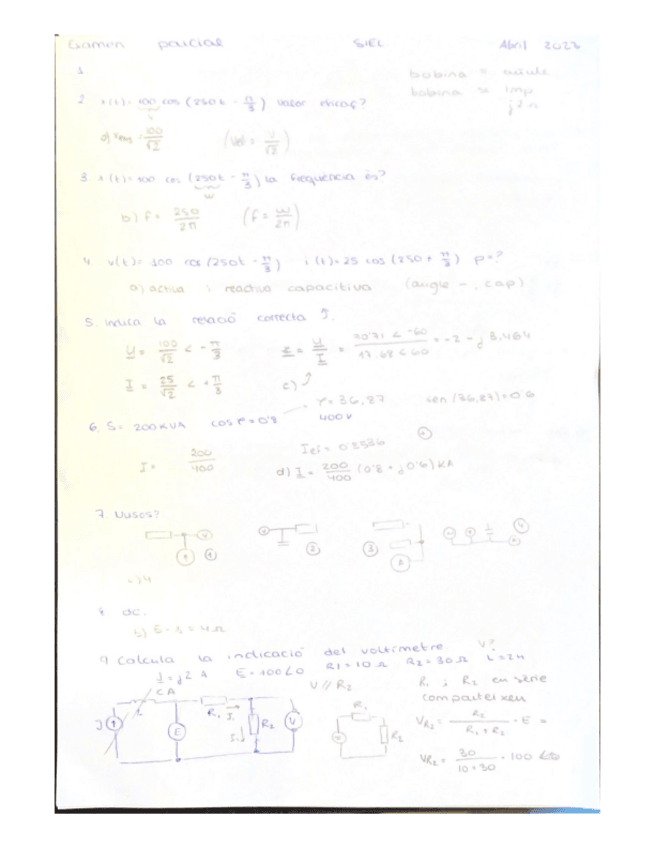 Examen parcial SIEL Abril 2023
1
bobina =
bobina = imp
2 x(t)= 100 cos (250t - π/3) valor eficaç?
a) 100/√2 (Vef = V/√2)
3 x(t)=100 cos (250t - π/3) la freqüència és?
w
b) f= 250/2π (f= w/2π)
4 v(t)= 100 cos (250t - π/3) i(t)=25 cos (250 + π/3) p=?
a) activa i reactiva capacitiva (angle - , cap)
5. Indica la relació correcta
U = 100/√2 < -π/3 Z = U/I = 70'71 < -60 / 17,68 < 60 = -2 - j 3.464
I = 25/√2 < +π/3 c)
φ = 36,87 sen (36,87)=0'6
6. S= 200 KVA cos φ = 0'8 400 V
Ief = 0'3536
I = 200/400 d) I = 200/400 (0'8 - j0'6) KA
7. Nusos?
1 2 3 4
V A
c) 4
8. DC.
b) E-J = 4Ω
9 Calcula la indicació del voltímetre. V?
J=j2 A E=100∠0 R1=10Ω R2=30Ω
CA V // R2 R1 i R2 en sèrie
comparteixen
J L E R1 I R2 V
R1 R2
VR2 = R2/(R1+R2) · E =
VR2 = 30/(10+30) · 100